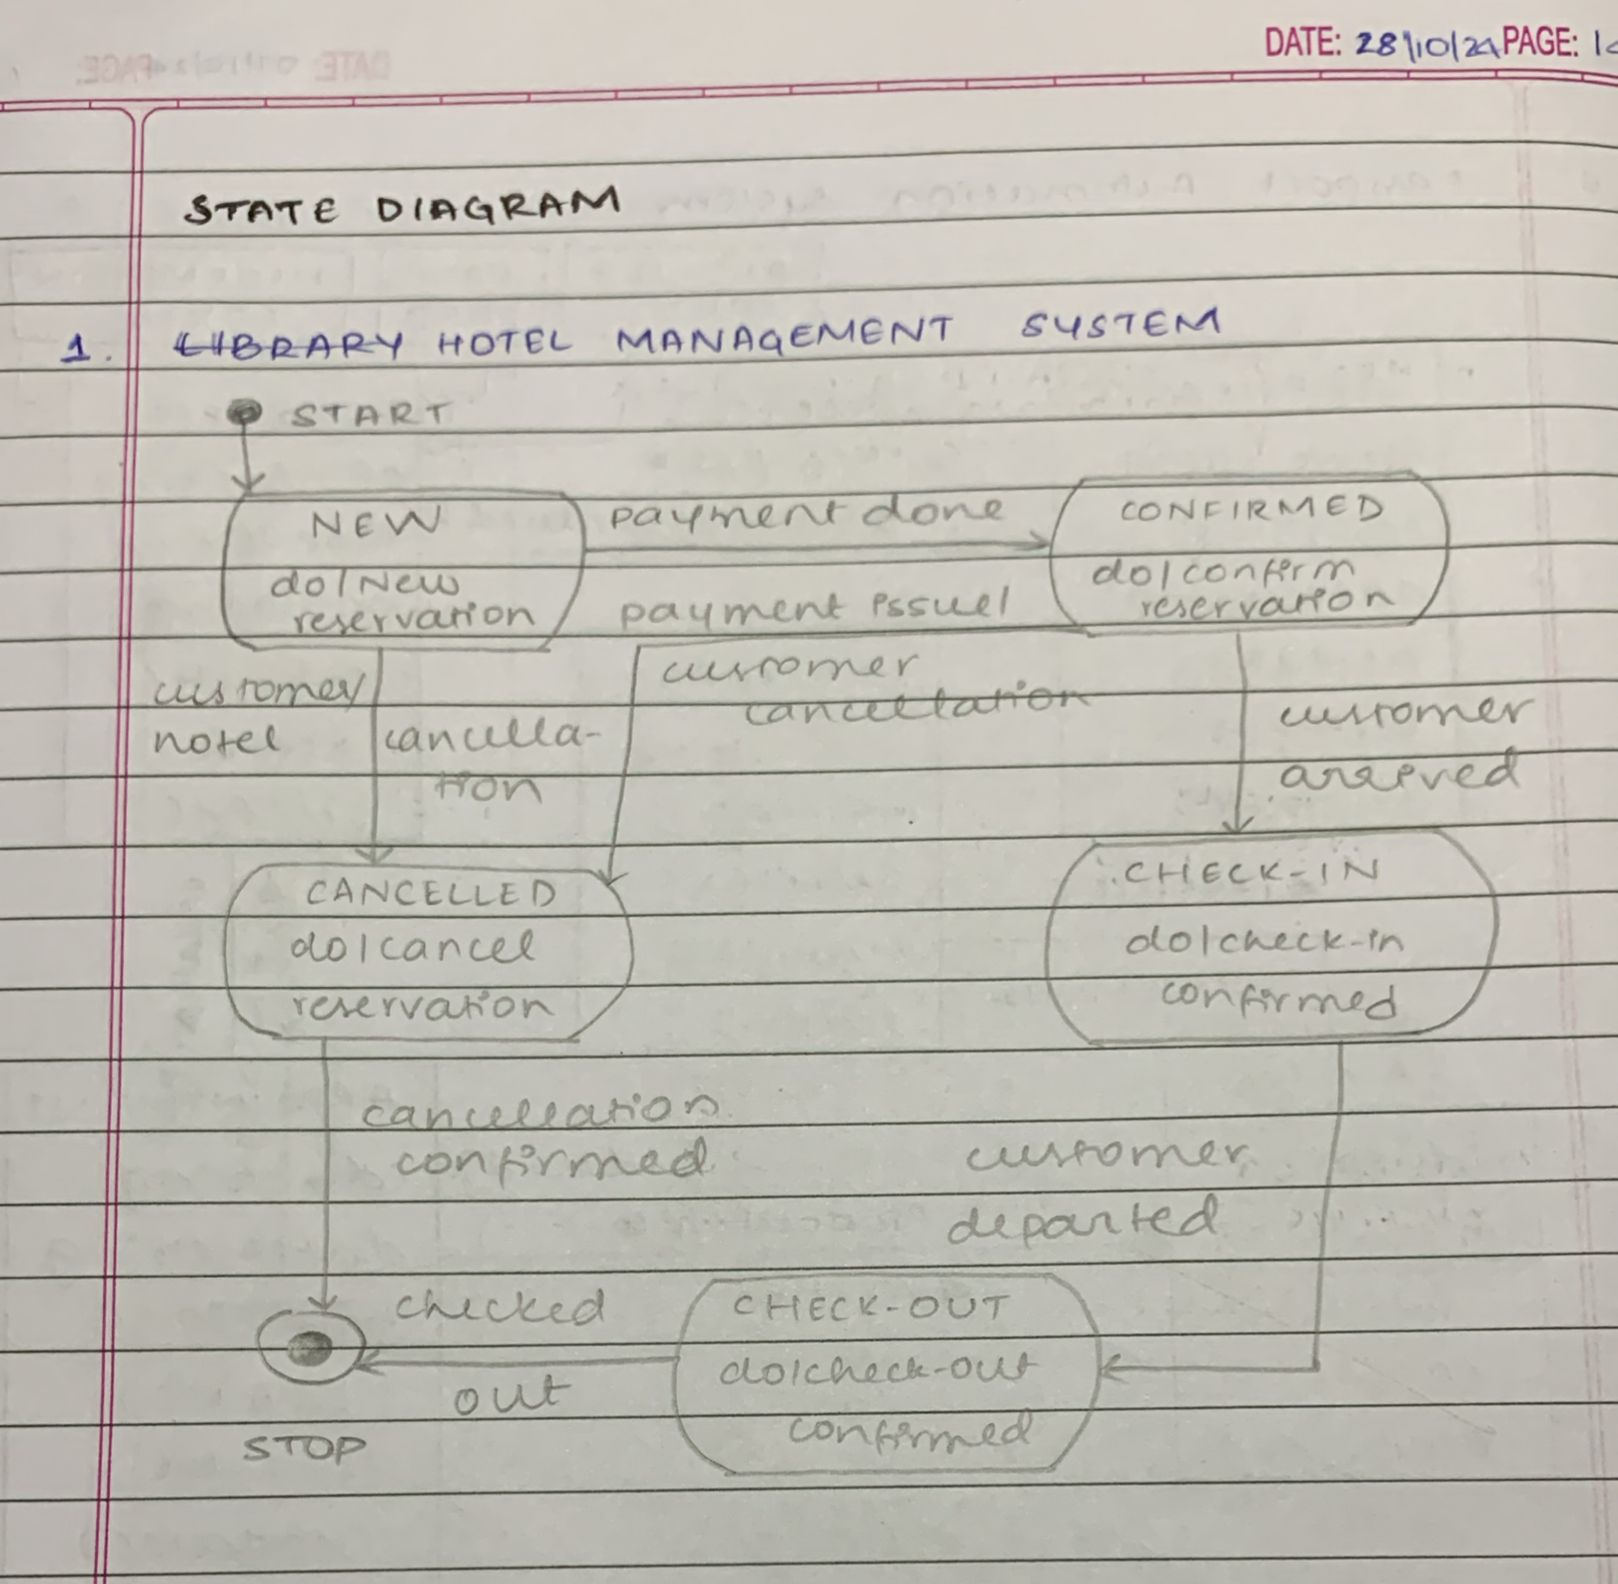 DATE: 28/10/24 PAGE:
STATE DIAGRAM
1. LIBRARY HOTEL MANAGEMENT SYSTEM
START
NEW
do/New
reservation
payment done
CONFIRMED
do/confirm
reservation
payment issue/
customer
cancellation
customer/
hotel
cancella-
tion
customer
arrived
CANCELLED
do/cancel
reservation
CHECK-IN
do/check-in
confirmed
cancellation
confirmed
customer
departed
checked
out
CHECK-OUT
do/check-out
confirmed
STOP